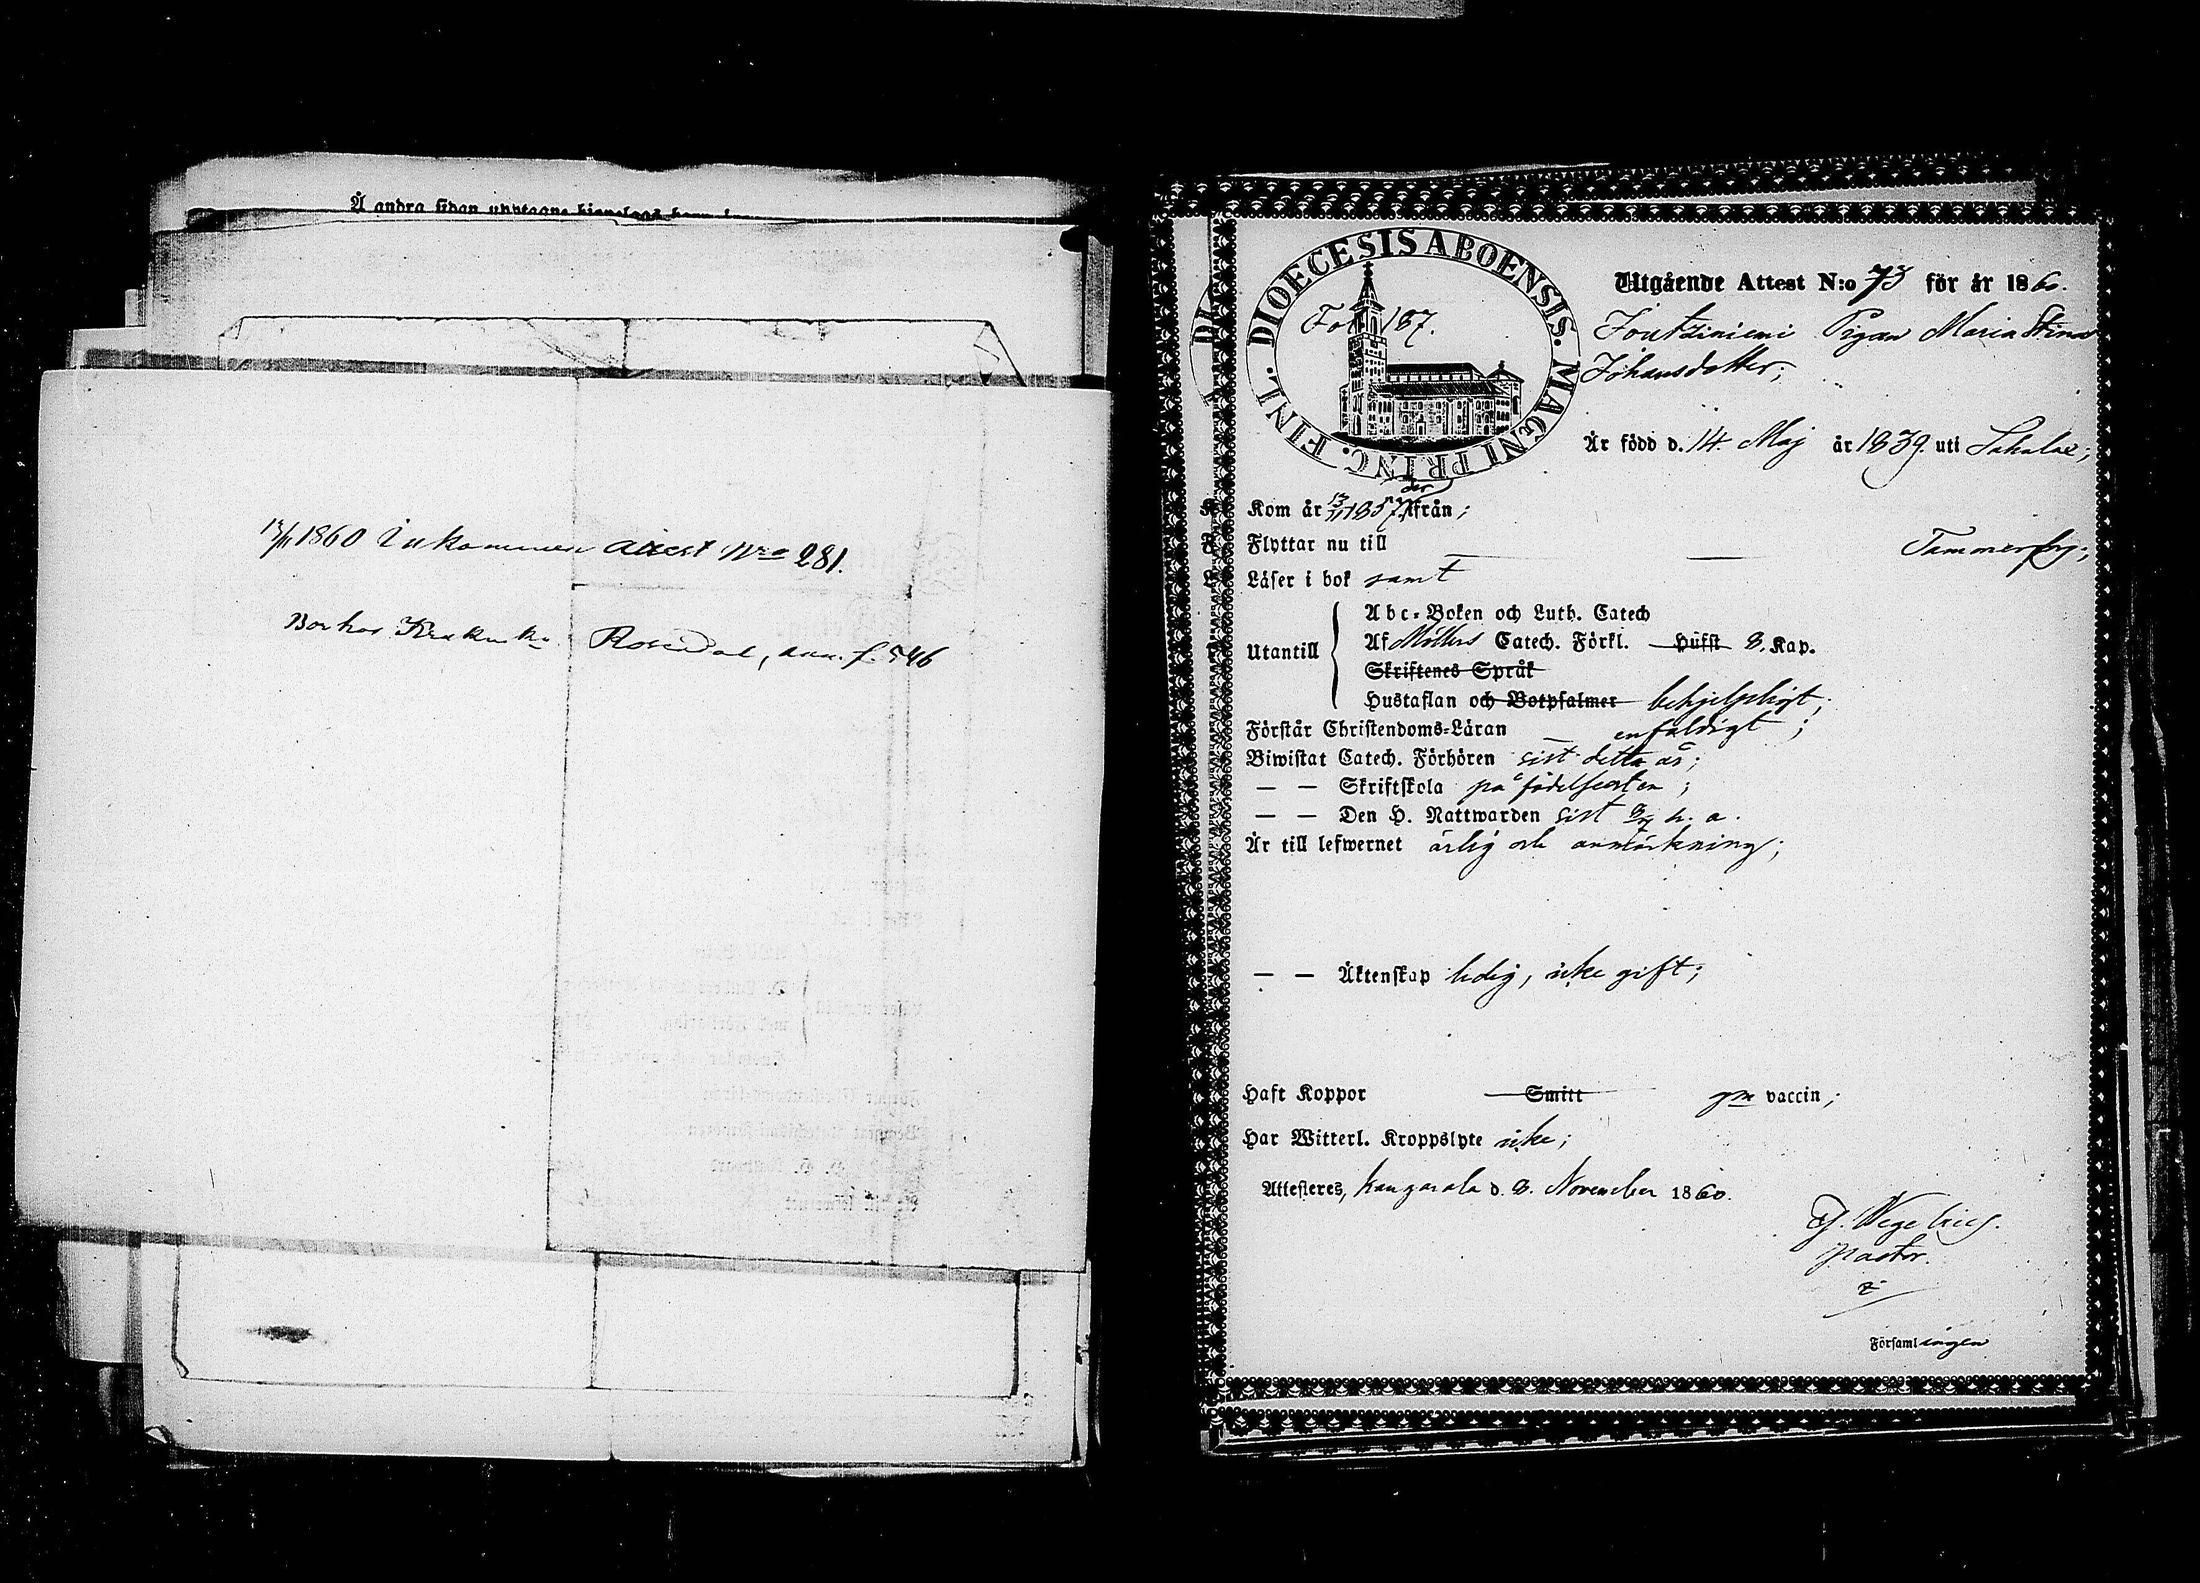 Å andra sidan upptagne
13/11 1860 Inkommen attest Nro 281.
Rosendal, ann. f. 546
DIOECESIS ABOENSIS. MAGNI PRINC. FINL.
Fol. 187.
Utgående Attest N:o 73 för år 1860.
Joutziniemi Pigan Maria Stina
Johansdotter;
Är född d. 14. Maj år 1839. uti Sahalax;
Kom år 13/11 1857 från;
Flyttar nu till — — Tammerfors;
Läser i bok samt
Utantill
Abc-Boken och Luth. Catech
Af Möllers Catech. Förkl. Hufst 8. Kap.
Skriftenes Språk
Hustaflan och Botpsalmer behjelpligt;
Förstår Christendoms-Läran — enfaldigt;
Biwistat Catech. Förhören sist detta år;
— — Skriftskola på födelseorten;
— — Den H. Nattwarden sist h. a.
Är till lefwernet ärlig och anmärkning;
— — Äktenskap ledig, icke gift;
Haft Koppor Smitt gm vaccin;
Har Witterl. Kroppslyte icke;
Attesteres, Kangasala d. 8. November 1860.
Wegelius.
pastor.
Församlingen